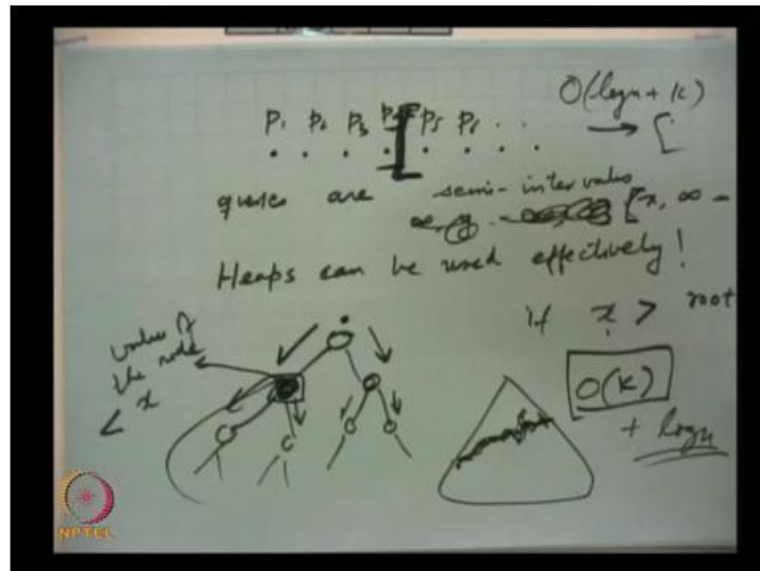 O(log n + k)
p₁ p₂ p₃ p₄ p₅ p₆ . . → [
queries are semi-intervals
[x, ∞ -
Heaps can be used effectively!
if x > root
value of
the node
< x
O(k)
+ log n
NPTEL